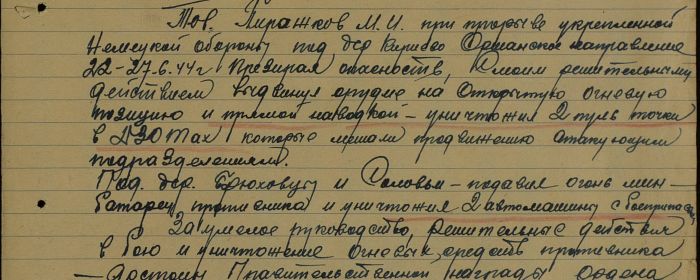 Тов. Пиражков М.И. при прорыве укрепленной
Немецкой обороны под дер Кириево Оршанское направление
22-27.6.44г Презирая опасность, Смелым решительным
действием выдвинул орудие на Открытую огневую
позицию и прямой наводкой - уничтожил 2 пул. точки
в ДЗОТах, которые мешали продвижению атакующим
подразделениям.
Под. дер. Брюховцы и Соловьи - подавил огонь мин-
батареи противника и уничтожил 2 автомашины с боеприпас
За умелое руководство, решительные действия
в бою и уничтожение огневых средств противника
- Достоин Правительственной награды ордена